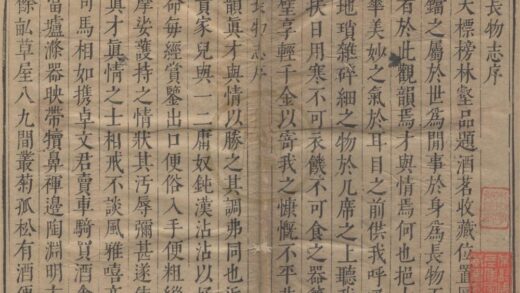 長物志序
夫標榜林壑品題酒茗收藏位置圖
鐺之屬於世爲閒事於身爲長物
者於此觀韻焉才與情焉何也挹
華美妙之氣於耳目之前供我呼
地瑣雜碎細之物於几席之上聽我
挾日用寒不可衣饑不可食之器
璧享輕千金以寄我之慷慨不平
韻眞才與情以勝之其調弗同也近
長物志序
貴家兒與一二庸奴鈍漢沾沾以好
命每經賞鑒出口便俗入手便粗縱
摩娑護持之情狀其汚辱彌甚遂使
眞才眞情之士相戒不談風雅嘻亦
司馬相如携卓文君賣車騎買酒舍
當壚滌器映帶犢鼻褌邊陶淵明方
餘畝草屋八九間叢菊孤松有酒便